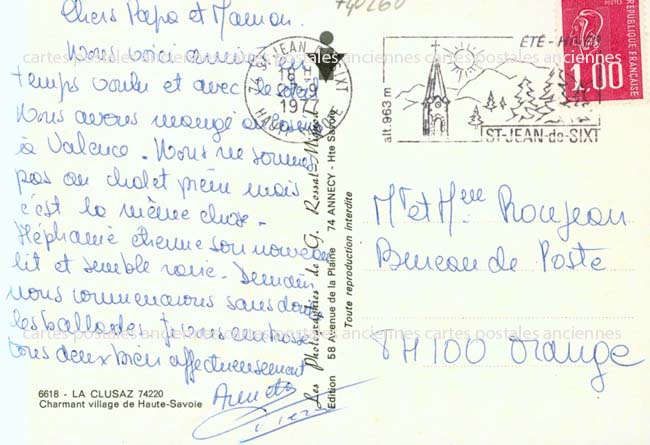 Chers Papa et Maman.
Nous voici arrivés au
temps voulu et avec le soleil
Nous avons mangé
à Valence. Nous ne sommes
pas au chalet prévu mais
c'est la même chose.
Stéphanie étrenne son nouveau
lit et semble ravie. Demain
nous commencerons sans doute
les ballades. Je vous embrasse
tous deux bien affectueusement
Annette
Pierre
6618 - LA CLUSAZ 74220
Charmant village de Haute-Savoie
Les Photographies de G. Rossat-Mignod
Edition 58 Avenue de la Plaine 74 ANNECY - Hte Savoie
Toute reproduction interdite
74260
74 ST-JEAN DE SIXT
18 H
1977
HAUTE SAVOIE
ETE - HIVER
alt. 963 m
ST-JEAN-de-SIXT
POSTES
1,00
REPUBLIQUE FRANÇAISE
Mr et Mme Roujean
Bureau de Poste
84100 Orange
cartes postales anciennes cartes postales anciennes cartes postales anciennes
cartes postales anciennes cartes postales anciennes cartes postales anciennes